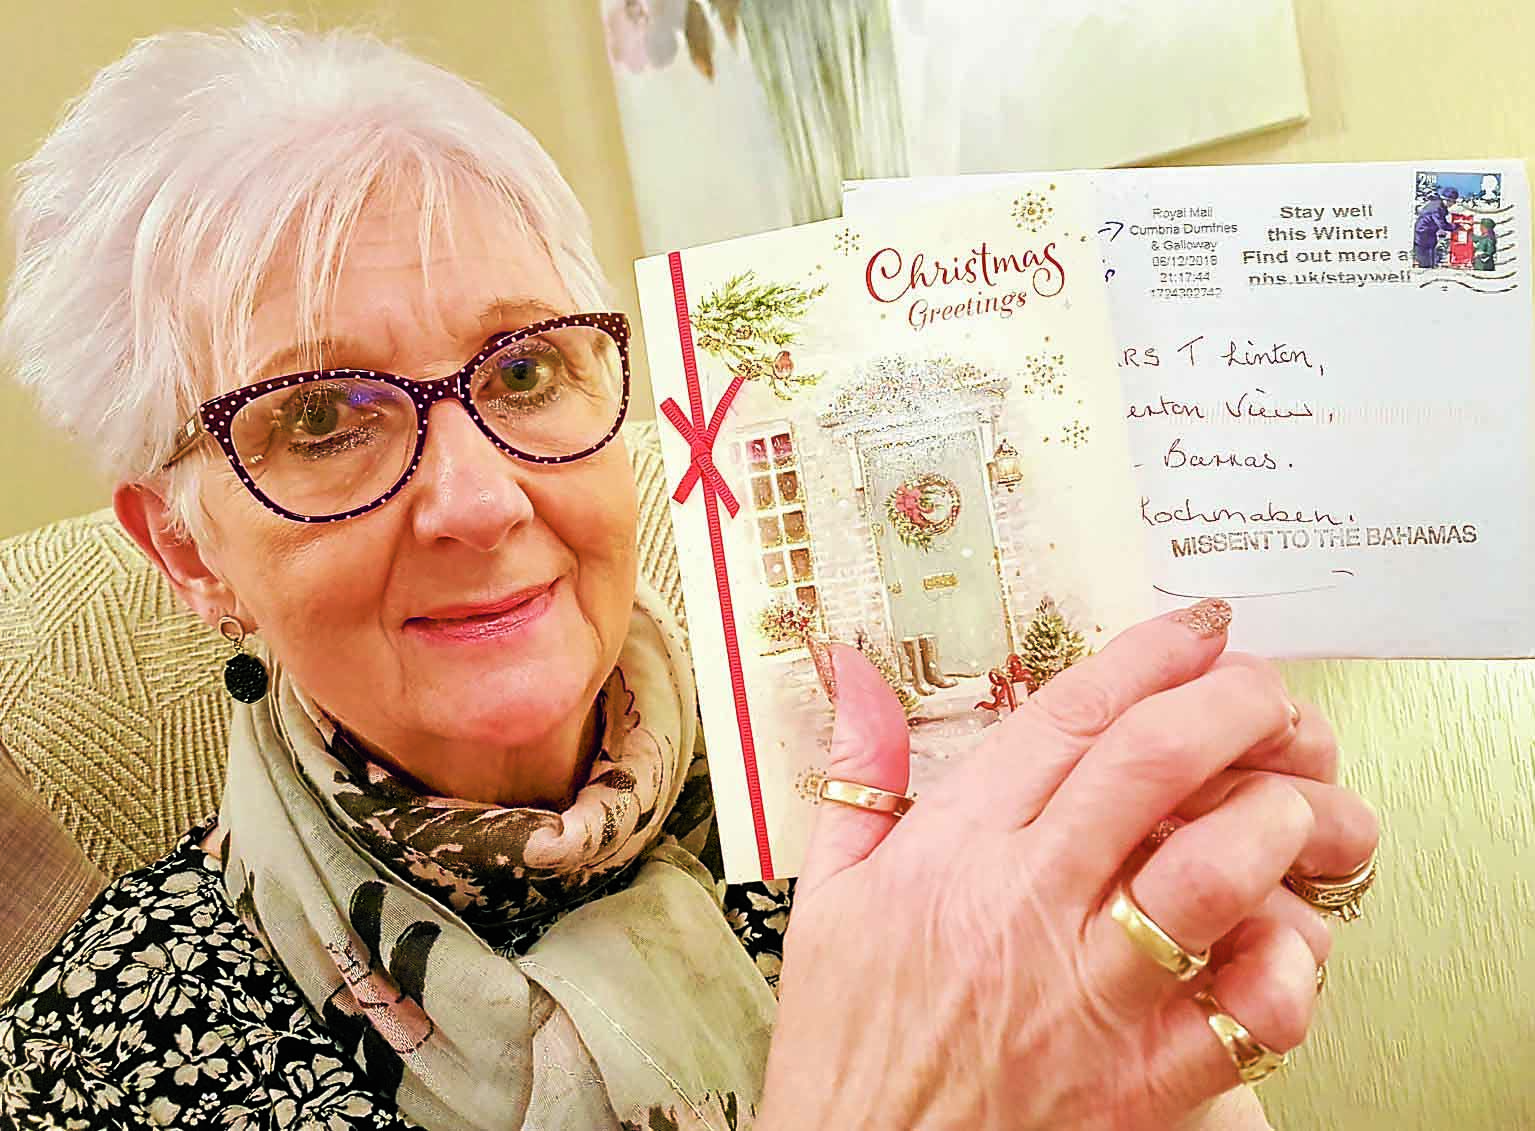 Christmas
Greetings
Royal Mail
Cumbria Dumfries
& Galloway
06/12/2018
21:17:44
1724302742
Stay well
this Winter!
Find out more a
nhs.uk/staywell
2ND
RS T Linton,
erton View,
Barras.
Lochmaben.
MISSENT TO THE BAHAMAS